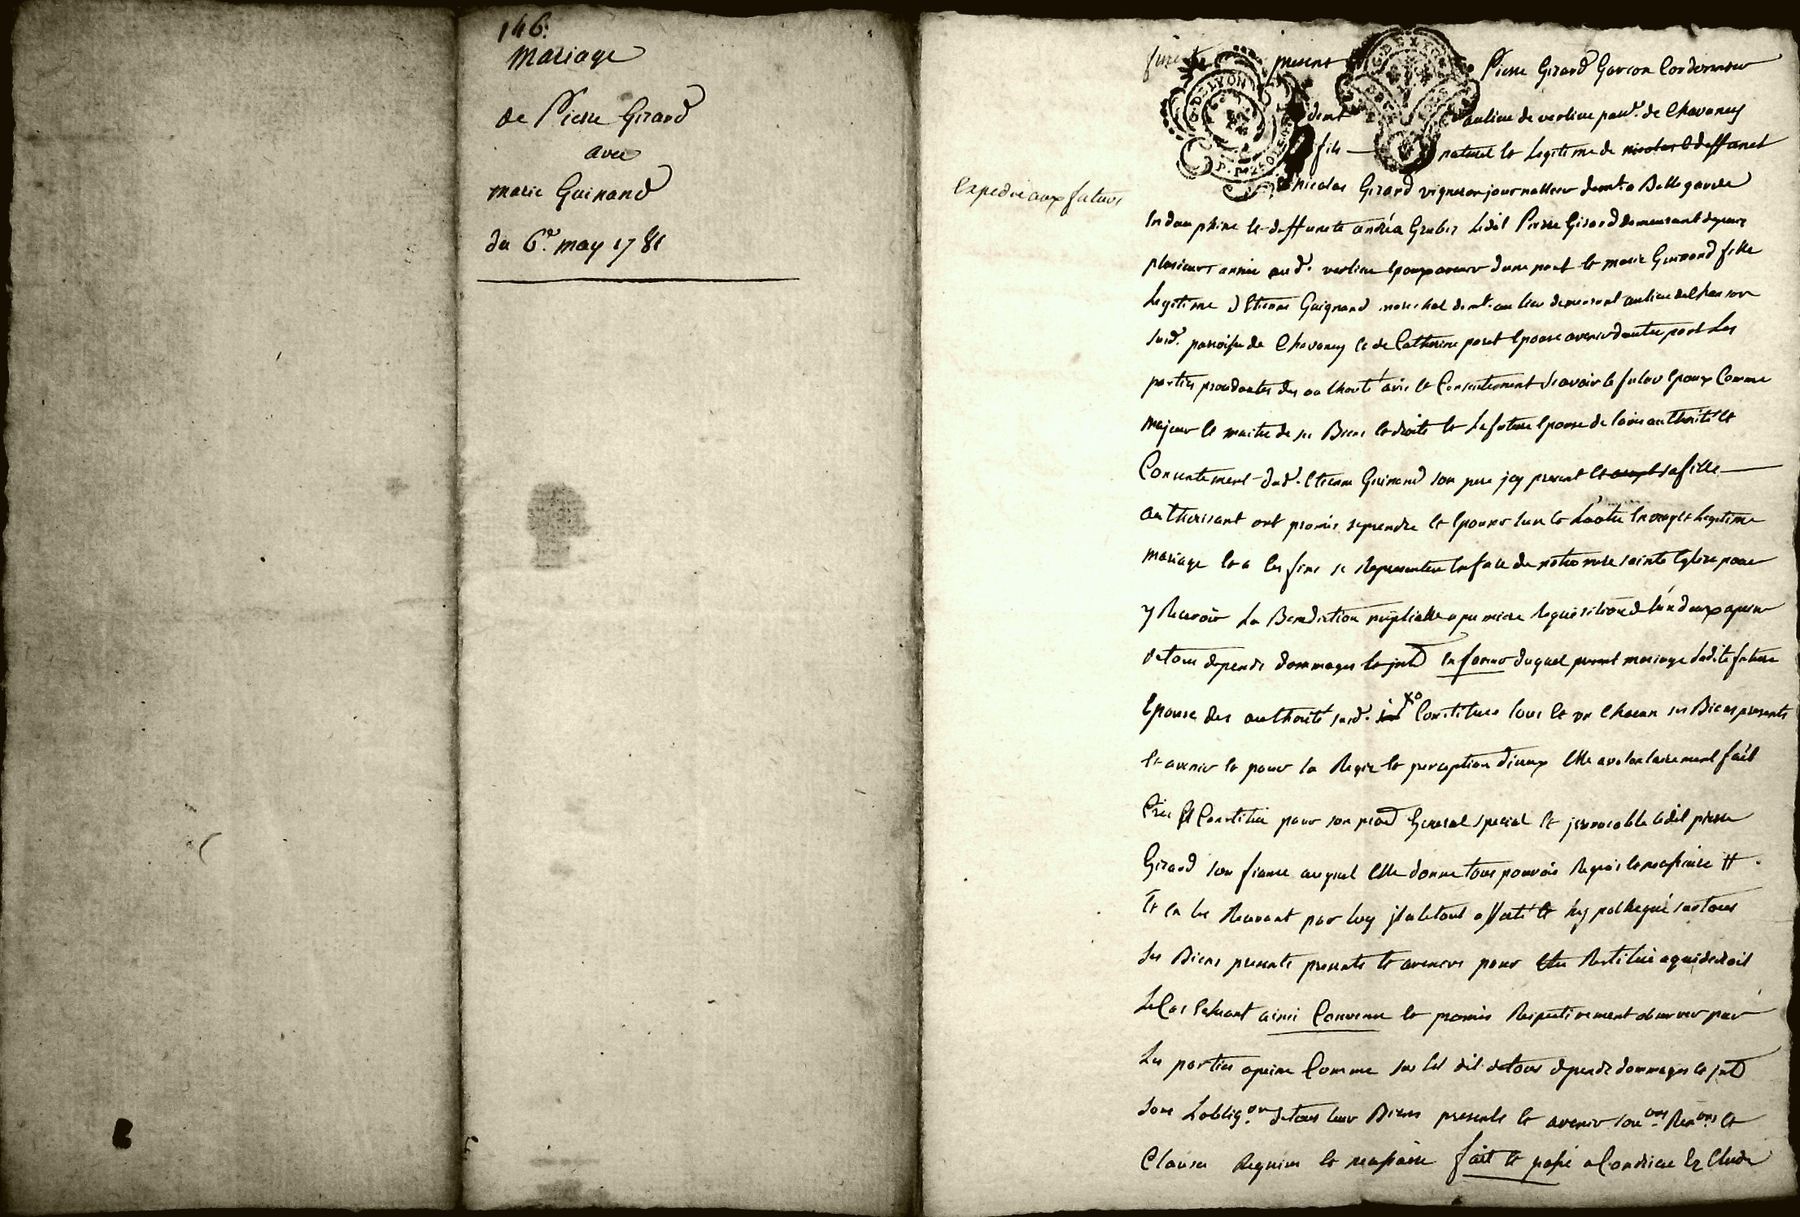 146.
Mariage
de Pierre Girard
avec
marie Guinand
du 6e. may 1781
Expedié aux futurs
furent present Pierre Girard Garçon Cordonnier
demt. au lieu de verlieu parr. de Chavanay
fils naturel et Legitime de nicolas & deffunct
nicolas Girard vigneron journallier demt. a Bellegarde
En dauphiné et deffuncte andréa Ledit Pierre Girard demeurant depuis
plusieurs année aud. verlieu Epoux avenir d'une part et marie Guinand fille
Legitime d'Etienne Guignand demt. au lieu
susd. paroisse de Chavanay et de Catherine poret Epouse avenir d'autre part Les
parties procedantes des authorité avis et Consentement sçavoir le futur Epoux Comme
majeur et maitre de ses Biens et droits et La future Epouse de l'avis authorité et
Consentement dud. Etienne Guinand son pere icy present et sa fille
authorisant ont promis se prendre et Epouser l'un et L'autre En vray et Legitime
mariage et a ces fins se Representer En face de notre mere sainte Eglise pour
y Recevoir La Benediction nuptialle a premiere Requisition de l'un d'eux a peine
de tous depends dommages et jnts En faveur duquel present mariage Ladite future
Epouse des authorité susd. Constitues tous et un Chacun ses Biens presents
et avenir et pour la Regie et perception d'iceux Elle a volontairement fait
Créé et Constitué pour son procr. General special et jrrevocable ledit pierre
Girard son fiancé auquel Elle donne tous pouvoir Requis et necessaire
Et en les Recevant par luy affecté et hypothequé sur tous
ses Biens presents presents et avenirs pour Etre Restitué a qui de droit
Le Cas Echeant ainsi Convenu et promis Respectivement observer par
Les parties a peine Comme sus Est dit de tous depends dommages et jnts
sous L'obligon. de tous leur Biens presents et avenir Renons. et
Clauses Requises et necessaire fait et passé a Condrieu En L'etude